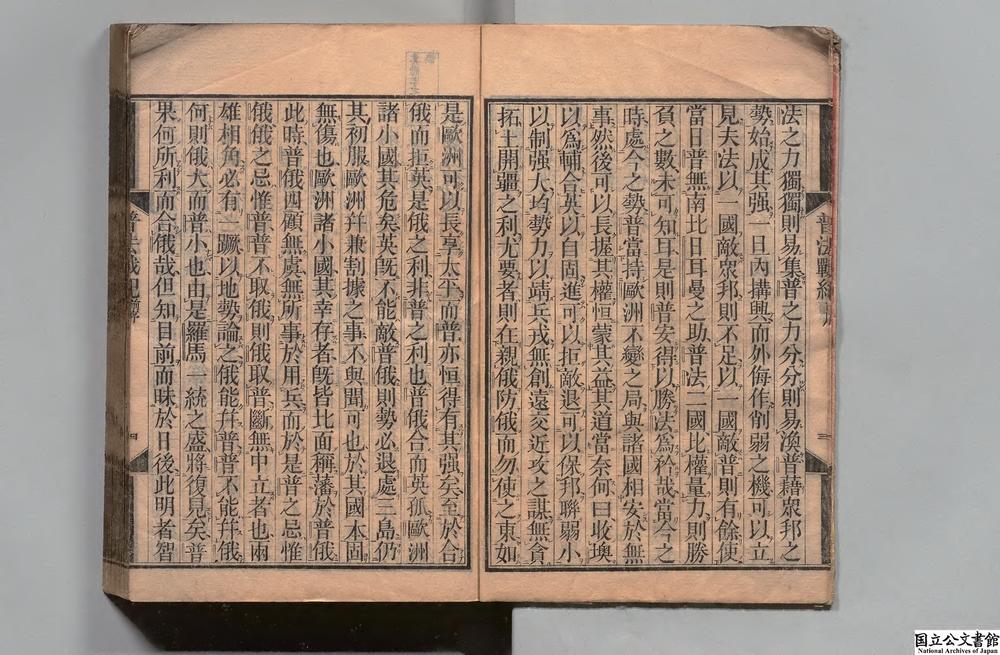 法之力獨獨則易集普之力分分則易渙普藉衆邦之
勢始成其强一日內搆興而外侮作削弱之機可以立
見夫法以一國敵衆邦則不足以一國敵普則有餘使
當日普無南北日耳曼之助普法二國比權量力則勝
負之數未可知耳是則普安得以勝法為矜哉當今之
時處今之勢普當持歐洲不變之局與諸國相安於無
事然後可以長握其權恒蒙其益其道當奈何曰收墺
以爲輔合英以自固進可以拒敵退可以保邦聯弱小
以制强大均勢力以靖兵戎無創遠交近攻之謀無貪
拓土開疆之利尤要者則在親俄防俄而勿使之東如
是歐洲可以長享太平而普亦恒得有其强矣至於合
俄而拒英是俄之利非普之利也普俄合而英孤歐洲
諸小國其危矣英旣不能敵普俄則勢必退處三島仍
其初服歐洲幷兼割據之事不與聞可也於其國本固
無傷也歐洲諸小國其幸存者旣皆北面稱藩於普俄
此時普俄四顧無虞無所事於用兵而於是普之忌惟
俄俄之忌惟普普不取俄則俄取普斷無中立者也兩
雄相角必有一蹶以地勢論之俄能幷普普不能幷俄
何則俄大而普小也由是羅馬一統之盛將復見矣普
果何所利而合俄哉但知目前而昧於日後此明者智
普法戰紀
三
四
国立公文書館
National Archives of Japan